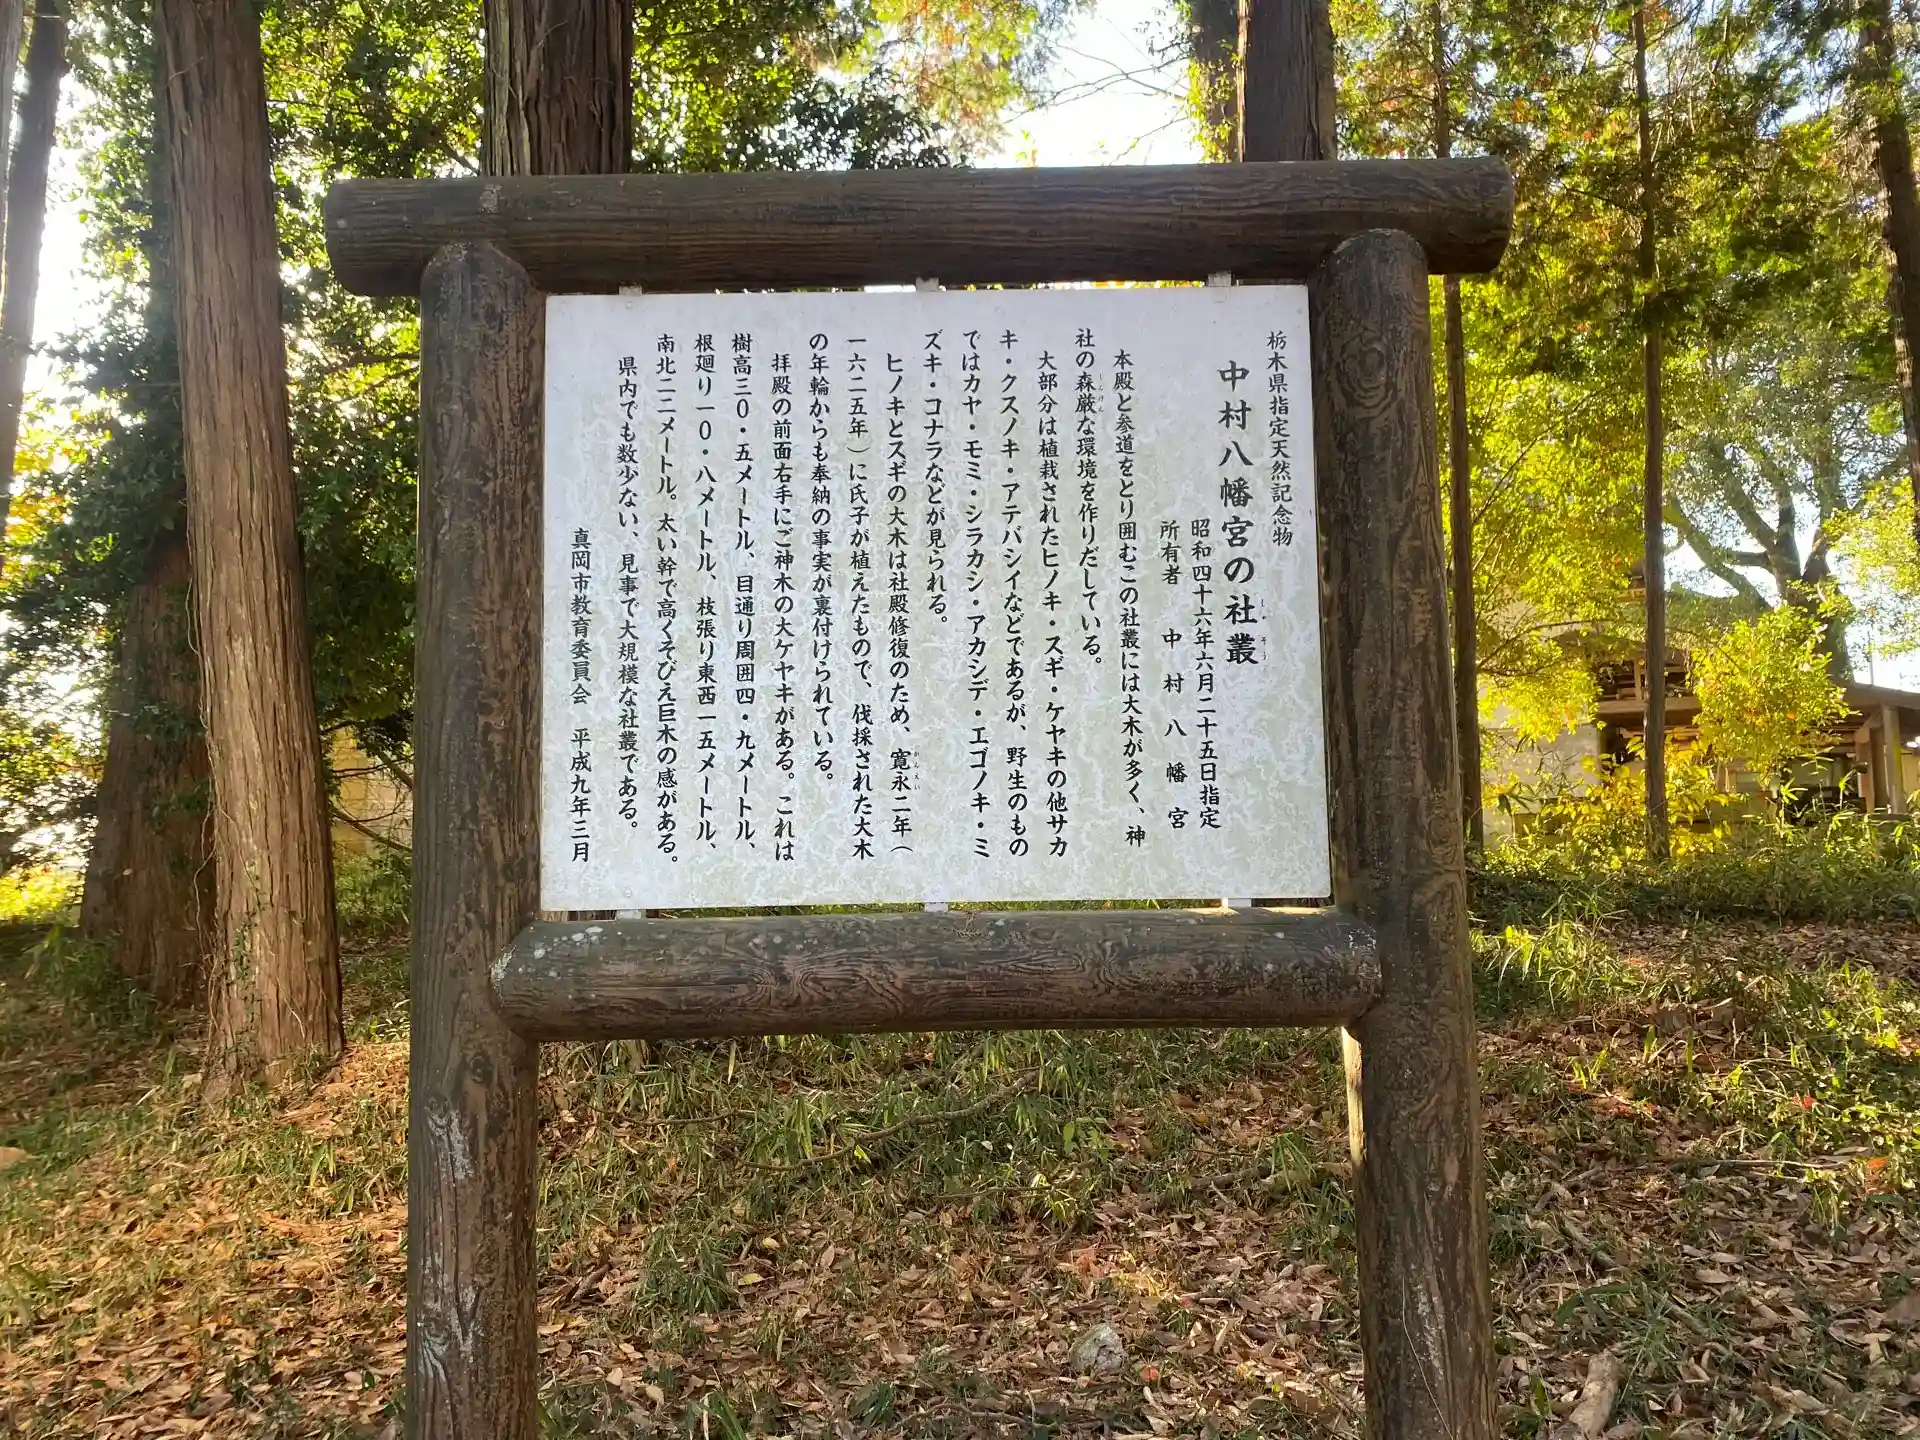 栃木県指定天然記念物
中村八幡宮の社叢
しゃそう
昭和四十六年六月二十五日指定
所有者　中村八幡宮
本殿と参道をとり囲むこの社叢には大木が多く、神
社の森厳な環境を作りだしている。
しんげん
大部分は植栽されたヒノキ・スギ・ケヤキの他サカ
キ・クスノキ・アテバシイなどであるが、野生のもの
ではカヤ・モミ・シラカシ・アカシデ・エゴノキ・ミ
ズキ・コナラなどが見られる。
ヒノキとスギの大木は社殿修復のため、寛永二年（
かんえい
一六二五年）に氏子が植えたもので、伐採された大木
の年輪からも奉納の事実が裏付けられている。
拝殿の前面右手にご神木の大ケヤキがある。これは
樹高三〇・五メートル、目通り周囲四・九メートル、
根廻り一〇・八メートル、枝張り東西一五メートル、
南北二二メートル。太い幹で高くそびえ巨木の感がある。
県内でも数少ない、見事で大規模な社叢である。
真岡市教育委員会　平成九年三月